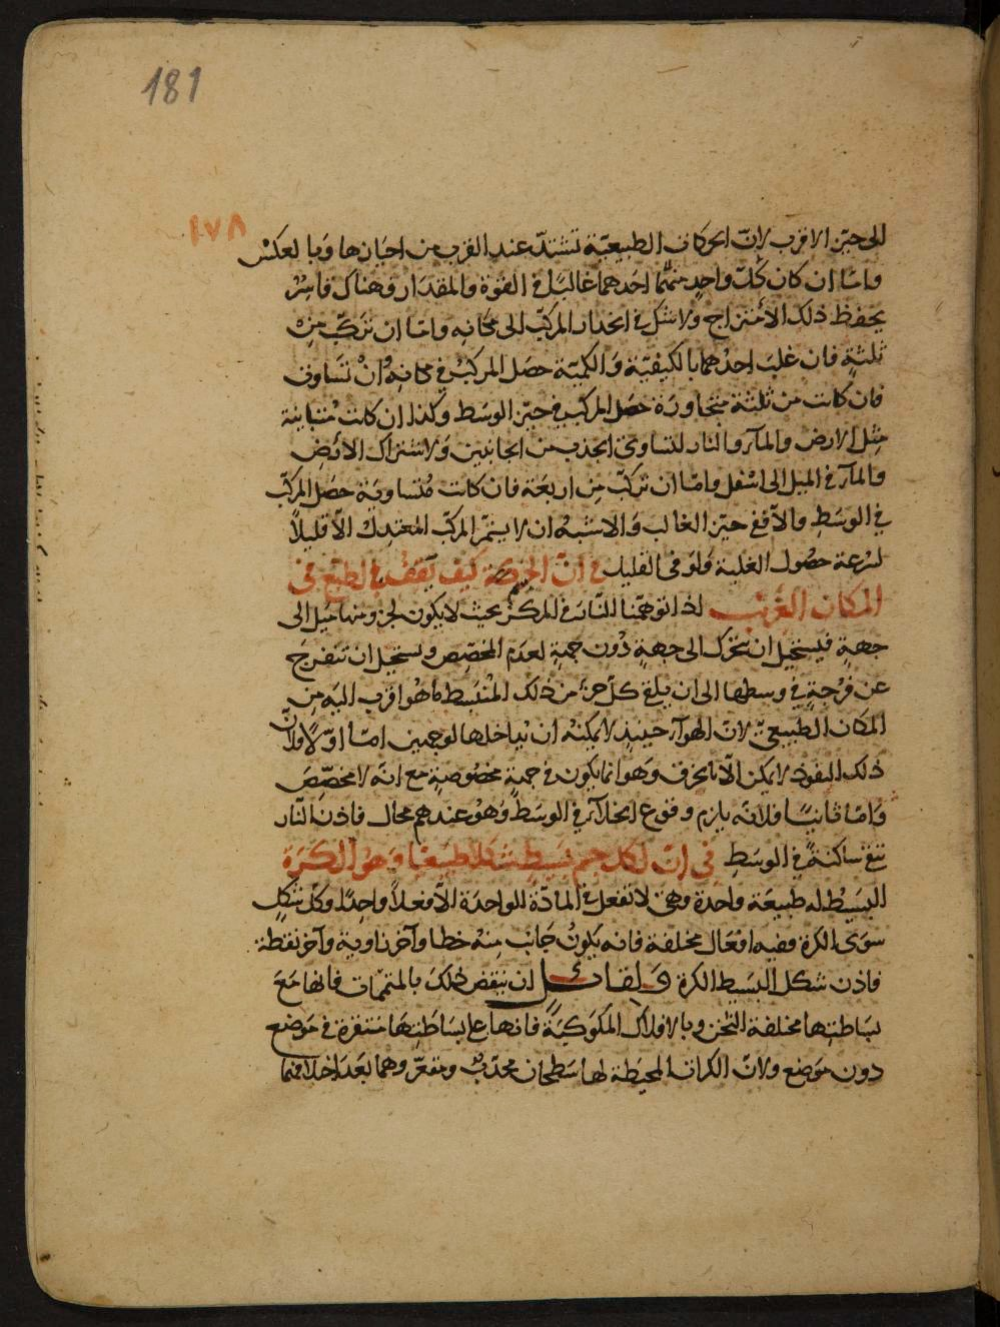 181
١٧٨
الى حيّز الاقرب لانّ الحركات الطبيعيّة تشتدّ عند القرب من احيازها وبالعكس
وامّا ان كان كلّ واحد منهما احدهما غالبًا في القوة والمقدار وهناك قاسر
يحفظ ذلك الامتزاج ولا شك في انحدار المركّب الى مكانه وامّا ان تركّب من
ثلثة فان غلب احدهما بالكيفيّة والكمية حصل المركب في مكانه وان تساوت
فان كانت من ثلثة متجاورة حصل المركب في حيّز الوسط وكذا ان كانت متباينة
مثل الارض والمآء والنار لتساوى الجذب من الجانبين ولاشتراك الارض
والمآء في الميل الى اسفل وامّا ان تركّب من اربعة فان كانت متساوية حصل المركّب
في الوسط والّا ففي حيّز الغالب والاشبه ان لا يستمرّ المركّب المعتدل الّا قليلاً
لسرعة حصول الغلبة ولو فى القليل في انّ الحركة كيف تقف في الطبع فى
المكان الغريب لذا توهّمنا النار في المركز بحيث لا يكون لجزء منها ميل الى
جهة فيستحيل ان يتحرّك الى جهة دون جهة لعدم المخصّص ويستحيل ان تنفرج
عن فرجة في وسطها الى ان يبلغ كلّ جزء من ذلك المنبسط ما هو اقرب اليه من
المكان الطبيعيّ لانّ الهوآء حينئذ لا يمكنه ان يداخلها لوجهين امّا اوّلاً فلانّ
ذلك النفوذ لا يمكن الّا بالخرق وهو انما يكون في جهة مخصوصة مع انّه لا مخصّص
وامّا ثانيًا فلانّه يلزم وقوع الخلآء في الوسط وهو عندهم محال فاذن النّار
تبقى ساكنة في الوسط في انّ لكلّ جسم بسيط شكلا طبيعيا وهو الكرة
البسيط له طبيعة واحدة وهى لا تفعل في المادّة الواحدة الّا فعلاً واحدًا وكلّ شكل
سوى الكرة ففيه افعال مختلفة فانه يكون جانب منه خطا وآخر زاوية وآخر نقطة
فاذن شكل البسيط الكرة ولقائل ان ينقض ذلك بالمتممات فانها مع
بساطتها مختلفة الثخن وبالافلاك المكوكبة فانها على بساطتها متقعرة في موضع
دون موضع ولانّ الكرات المحيطة لها سطحان محدّب ومقعّر وهما بعد اختلافهما